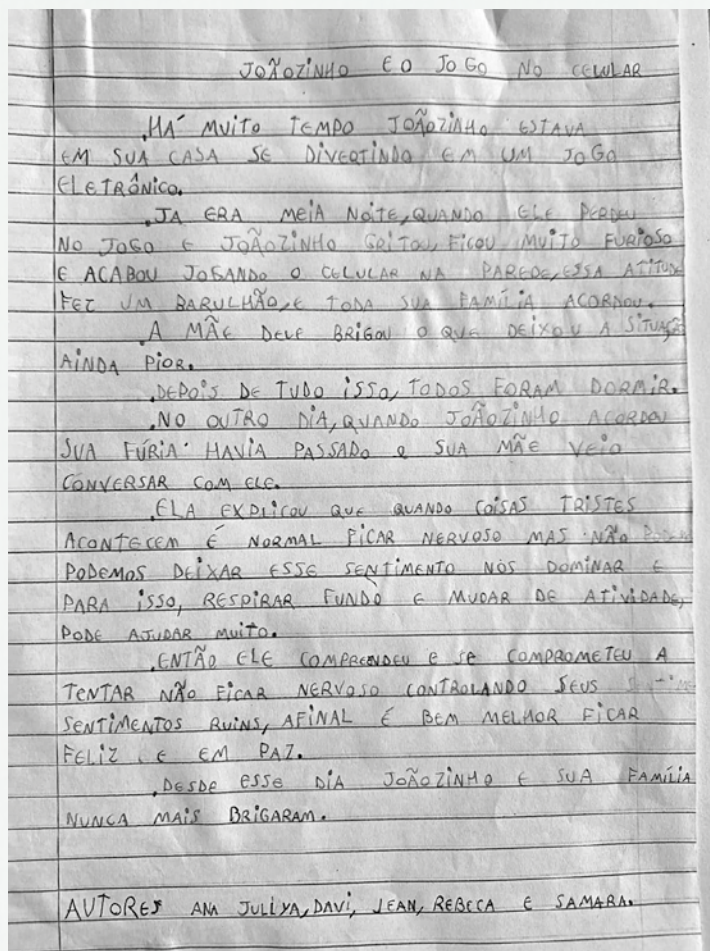 JOÃOZINHO E O JOGO NO CELULAR
.HÁ MUITO TEMPO JOÃOZINHO ESTAVA
EM SUA CASA SE DIVERTINDO EM UM JOGO
ELETRÔNICO.
.JA ERA MEIA NOITE, QUANDO ELE PERDEU
NO JOGO E JOÃOZINHO GRITOU, FICOU MUITO FURIOSO
E ACABOU JOGANDO O CELULAR NA PAREDE, ESSA ATITUDE
FEZ UM BARULHÃO, E TODA SUA FAMÍLIA ACORDOU.
.A MÃE DELE BRIGOU O QUE DEIXOU A SITUAÇÃ
AINDA PIOR.
.DEPOIS DE TUDO ISSO, TODOS FORAM DORMIR.
.NO OUTRO DIA, QUANDO JOÃOZINHO ACORDOU
SUA FÚRIA HAVIA PASSADO e SUA MÃE VEIO
CONVERSAR COM ELE.
.ELA EXPLICOU QUE QUANDO COISAS TRISTES
ACONTECEM É NORMAL FICAR NERVOSO MAS NÃO
PODEMOS DEIXAR ESSE SENTIMENTO NOS DOMINAR E
PARA ISSO, RESPIRAR FUNDO E MUDAR DE ATIVIDADE,
PODE AJUDAR MUITO.
.ENTÃO ELE COMPREENDEU E SE COMPROMETEU A
TENTAR NÃO FICAR NERVOSO CONTROLANDO SEUS
SENTIMENTOS RUINS, AFINAL É BEM MELHOR FICAR
FELIZ E EM PAZ.
.DESDE ESSE DIA JOÃOZINHO E SUA FAMÍLIA
NUNCA MAIS BRIGARAM.
AUTORES ANA JULLYA, DAVI, JEAN, REBECA E SAMARA.